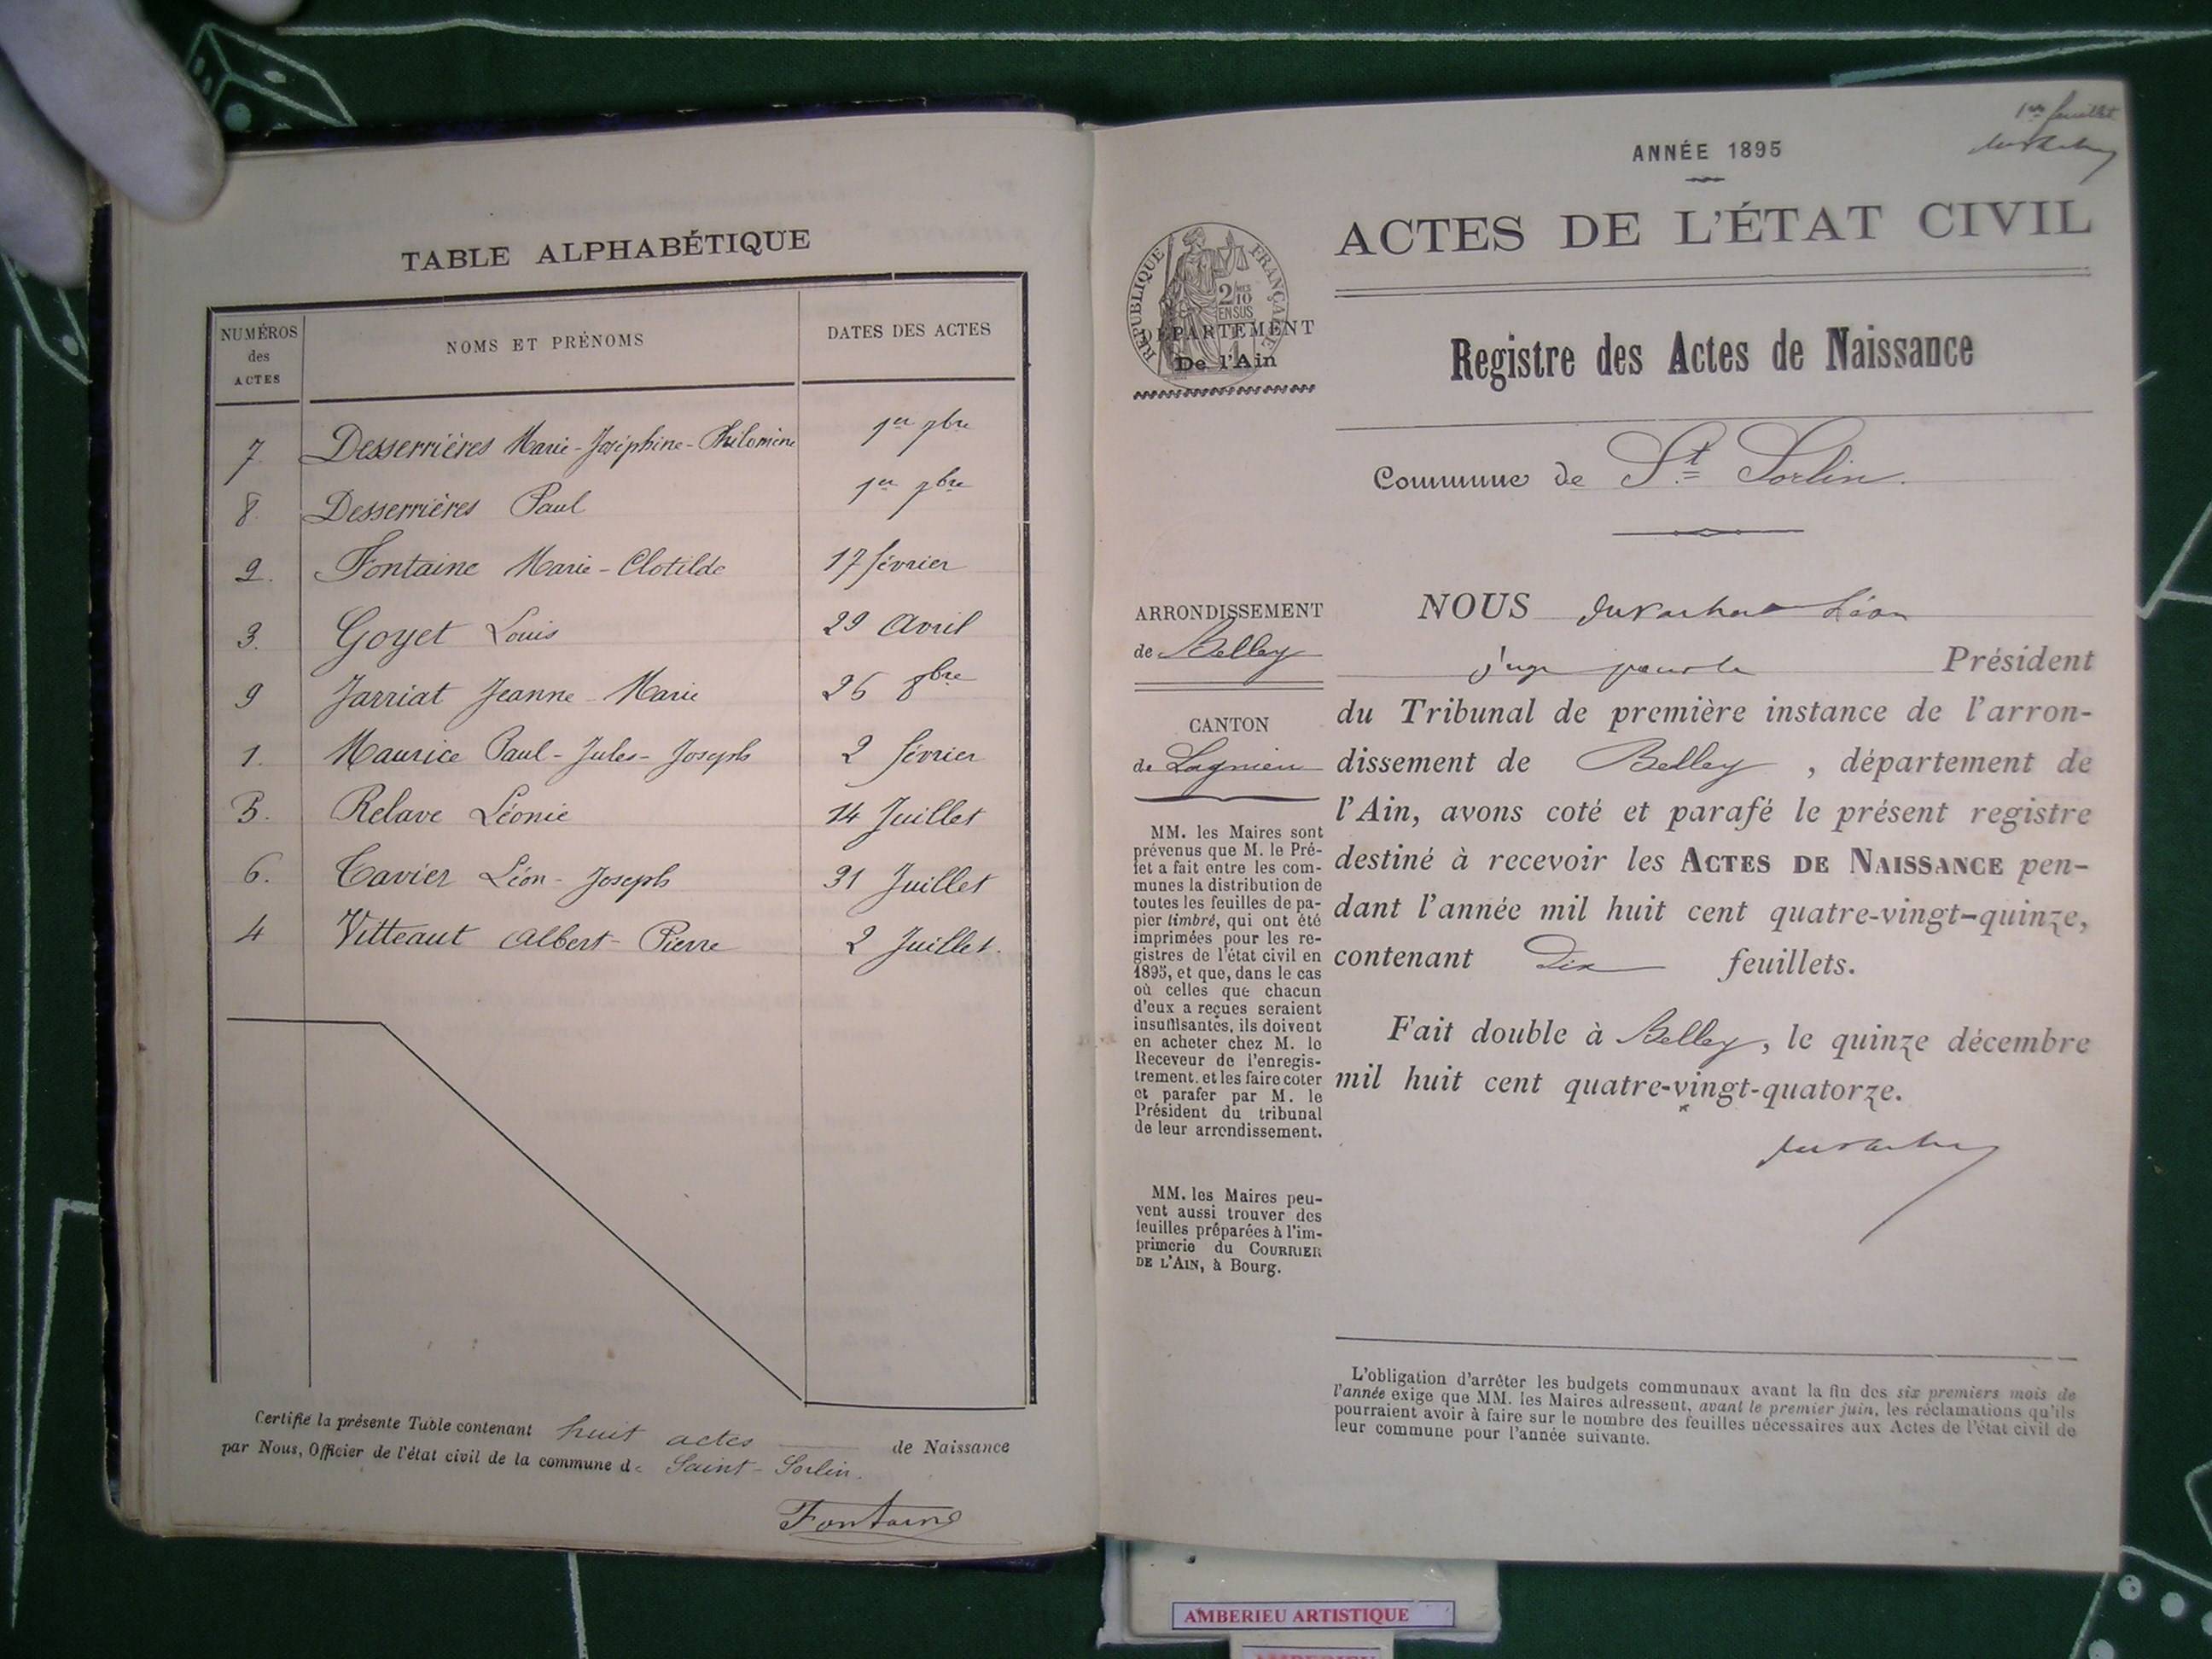 TABLE ALPHABÉTIQUE
NUMÉROS
des
ACTES
NOMS ET PRÉNOMS
DATES DES ACTES
7. Desserrières Marie-Joséphine-Philomène 1er 7bre
8. Desserrières Paul 1er 7bre
2. Fontaine Marie-Clotilde 17 février
3. Goyet Louis 29 Avril
9 Jarriat Jeanne-Marie 26 8bre
1. Maurice Paul-Jules-Joseph 2 février
5. Relave Léonie 14 Juillet
6. Tavier Léon-Joseph 31 Juillet
4 Vitteaut Albert-Pierre 2 Juillet.
Certifié la présente Table contenant huit actes de Naissance
par Nous, Officier de l'état civil de la commune de Saint-Sorlin.
Fontaine
1er feuillet
ANNÉE 1895
ACTES DE L'ÉTAT CIVIL
RÉPUBLIQUE FRANÇAISE
2/10
EN SUS
DÉPARTEMENT
De l'Ain
Registre des Actes de Naissance
Commune de St Sorlin.
ARRONDISSEMENT
de Belley
CANTON
de Lagnieu
MM. les Maires sont
prévenus que M. le Pré-
fet a fait entre les com-
munes la distribution de
toutes les feuilles de pa-
pier timbré, qui ont été
imprimées pour les re-
gistres de l'état civil en
1895, et que, dans le cas
où celles que chacun
d'eux a reçues seraient
insuffisantes, ils doivent
en acheter chez M. le
Receveur de l'enregis-
trement, et les faire coter
et parafer par M. le
Président du tribunal
de leur arrondissement.
MM. les Maires peu-
vent aussi trouver des
feuilles préparées à l'im-
primerie du COURRIER
DE L'AIN, à Bourg.
NOUS Léon
juge pour le Président
du Tribunal de première instance de l'arron-
dissement de Belley, département de
l'Ain, avons coté et parafé le présent registre
destiné à recevoir les ACTES DE NAISSANCE pen-
dant l'année mil huit cent quatre-vingt-quinze,
contenant Dix feuillets.
Fait double à Belley, le quinze décembre
mil huit cent quatre-vingt-quatorze.
L'obligation d'arrêter les budgets communaux avant la fin des six premiers mois de
l'année exige que MM. les Maires adressent, avant le premier juin, les réclamations qu'ils
pourraient avoir à faire sur le nombre des feuilles nécessaires aux Actes de l'état civil de
leur commune pour l'année suivante.
AMBERIEU ARTISTIQUE
AMBERIEU